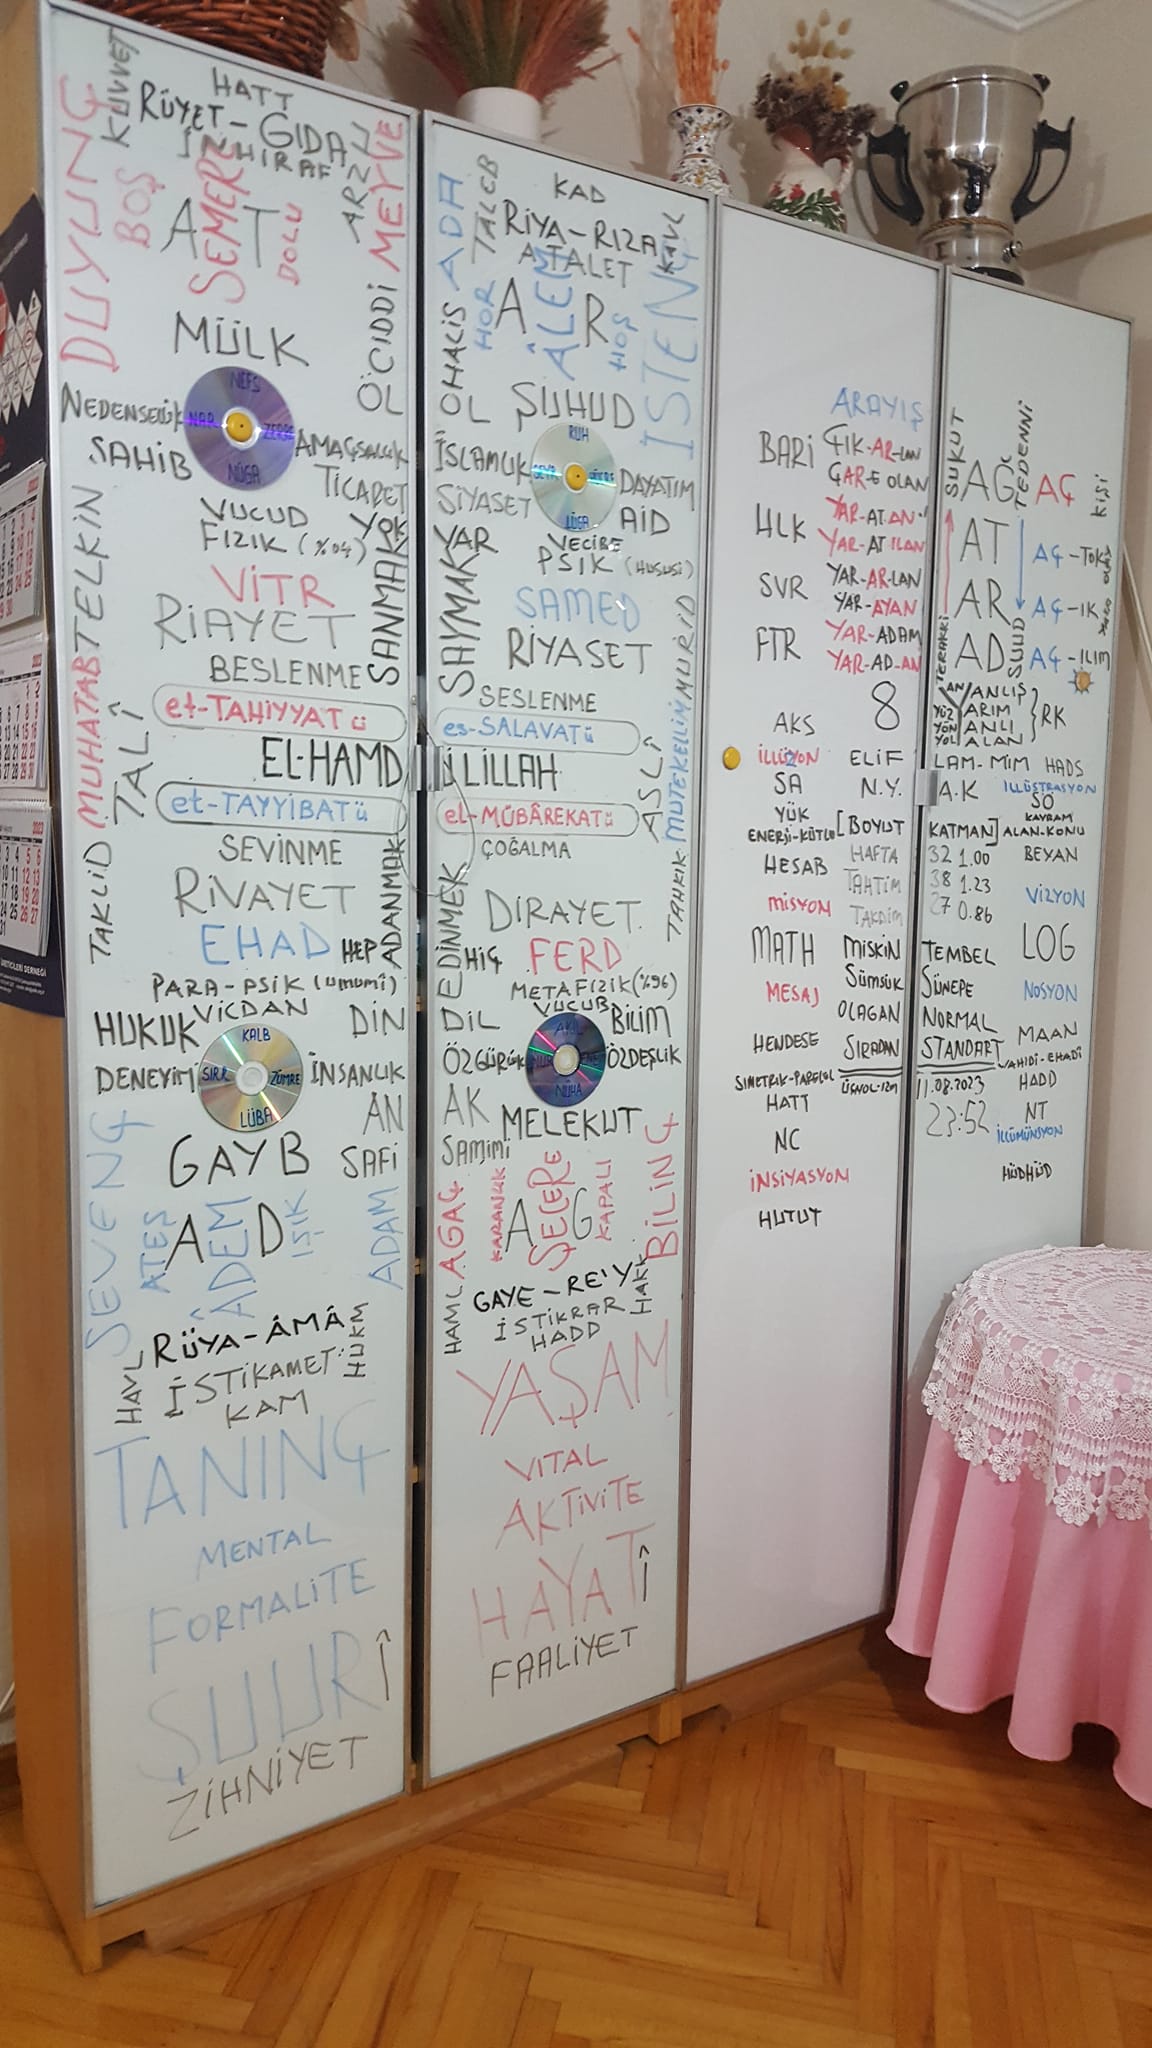 KUVVET
HATT
RÜYET-GIDA
İNHİRAF
ARZU
MEYVE
DUYUNÇ
BOŞ
AT
SEMERE
DOLU
MÜLK
ÖL
CİDDİ
NEFS
NAR
NÜGA
NEDENSELLİK
AMAÇSALLIK
SAHİB
TİCARET
VUCUD
YOK
FIZIK (%04)
TELKİN
SANMAK
VİTR
RİAYET
BESLENME
MUHATAB
TALÎ
et-TAHİYYATÜ
EL-HAMD
et-TAYYİBATÜ
SEVİNME
TAKLİD
RİVAYET
ADANMAK
EHAD
HEP
PARA-PSİK (UMUMÎ)
VİCDAN
HUKUK
DİN
KALB
SIRR
ZÜMRE
LÜBA
DENEYİM
İNSANLIK
AN
GAYB
SAFİ
SEVENÇ
ATEŞ
AD
ÂDEM
IŞIK
ADAM
RÜYA-ÂMÂ
HUKM
HAVL
İSTİKAMET
KAM
TANINÇ
MENTAL
FORMALİTE
ŞUURÎ
ZİHNİYET
ADA
TALEB
KAD
RİYA-RIZA
ATALET
KAVL
İSTENÇ
HOR
AR
ÂLEM
HOŞ
OL
OHALİS
ŞUHUD
RUH
LÜGA
İSLAMLIK
DAYATIM
SİYASET
AİD
YAR
VECİBE
PSİK (HUSUSİ)
SAYMAK
SAMED
RİYASET
SESLENME
es-SALAVATÜ
LİLLAH
ASLÎ
MUTEKELLİM
MURİD
el-MÜBÂREKATÜ
ÇOĞALMA
TAHKIK
EDİNMEK
DIRAYET
HİÇ
FERD
METAFIZIK (%96)
VUCUB
DİL
BİLİM
AKIL
NUR
ENE
NÜHA
ÖZGÜRLÜK
ÖZDEŞLİK
AK
MELEKUT
SAMİMİ
AGAÇ
KARANLIK
AG
ŞECERE
KAPALI
BİLİNÇ
HAML
GAYE-RE'Y
HAKK
İSTİKRAR
HADD
YAŞAM
VITAL
AKTİVİTE
HAYATÎ
FAALİYET
ARAYIŞ
BARİ
ÇIK-AR-LAN
ÇAR-E OLAN
HLK
YAR-AT-AN
YAR-AT ILAN
SVR
YAR-AR-LAN
YAR-AYAN
FTR
YAR-ADAM
YAR-AD-AN
8
AKS
İLLÜZYON
ELİF
SA
N.Y.
YÜK
ENERJİ-KÜTLE
[BOYUT
HESAB
HAFTA
TAHTİM
MİSYON
TAKDİM
MATH
MİSKİN
SÜMSÜK
MESAJ
OLAGAN
HENDESE
SIRADAN
SIMETRIK-PARELEL
HATT
NC
İNSİYASYON
HUTUT
SUKUT
AG
TEDENNİ
AÇ
KİŞİ
AT
AÇ-TOK
AR
AÇ-IK
TERAKKİ
AD
SUUD
AÇ-ILIM
YANLIŞ
YARIM
YANLI
YALAN
YÜZ
YÖN
YOL
RK
LAM-MİM
HADS
A.K
İLLÜSTRASYON
SÖ
KAVRAM
KATMAN]
ALAN-KONU
32 1.00
BEYAN
38 1.23
27 0.86
VİZYON
LOG
TEMBEL
SÜNEPE
NOSYON
NORMAL
MAAN
STANDART
VAHİDİ-EHADİ
11.08.2023
HADD
23:52
NT
İLLÜMÜNSYON
HÜDHÜD